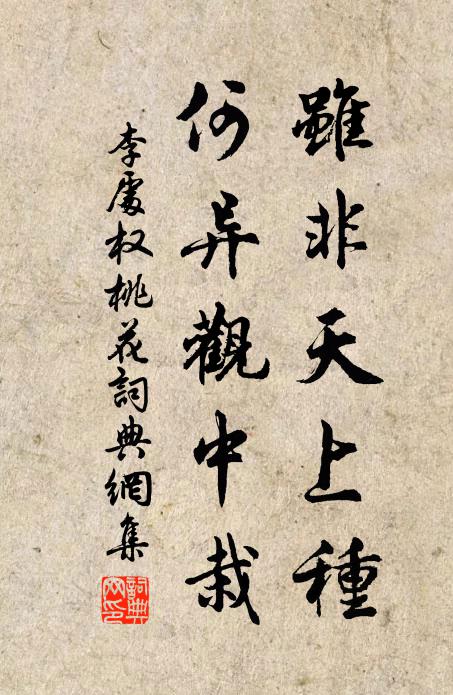 雖非天上種
何异觀中栽
李處权桃花詞典網集
詞典网印